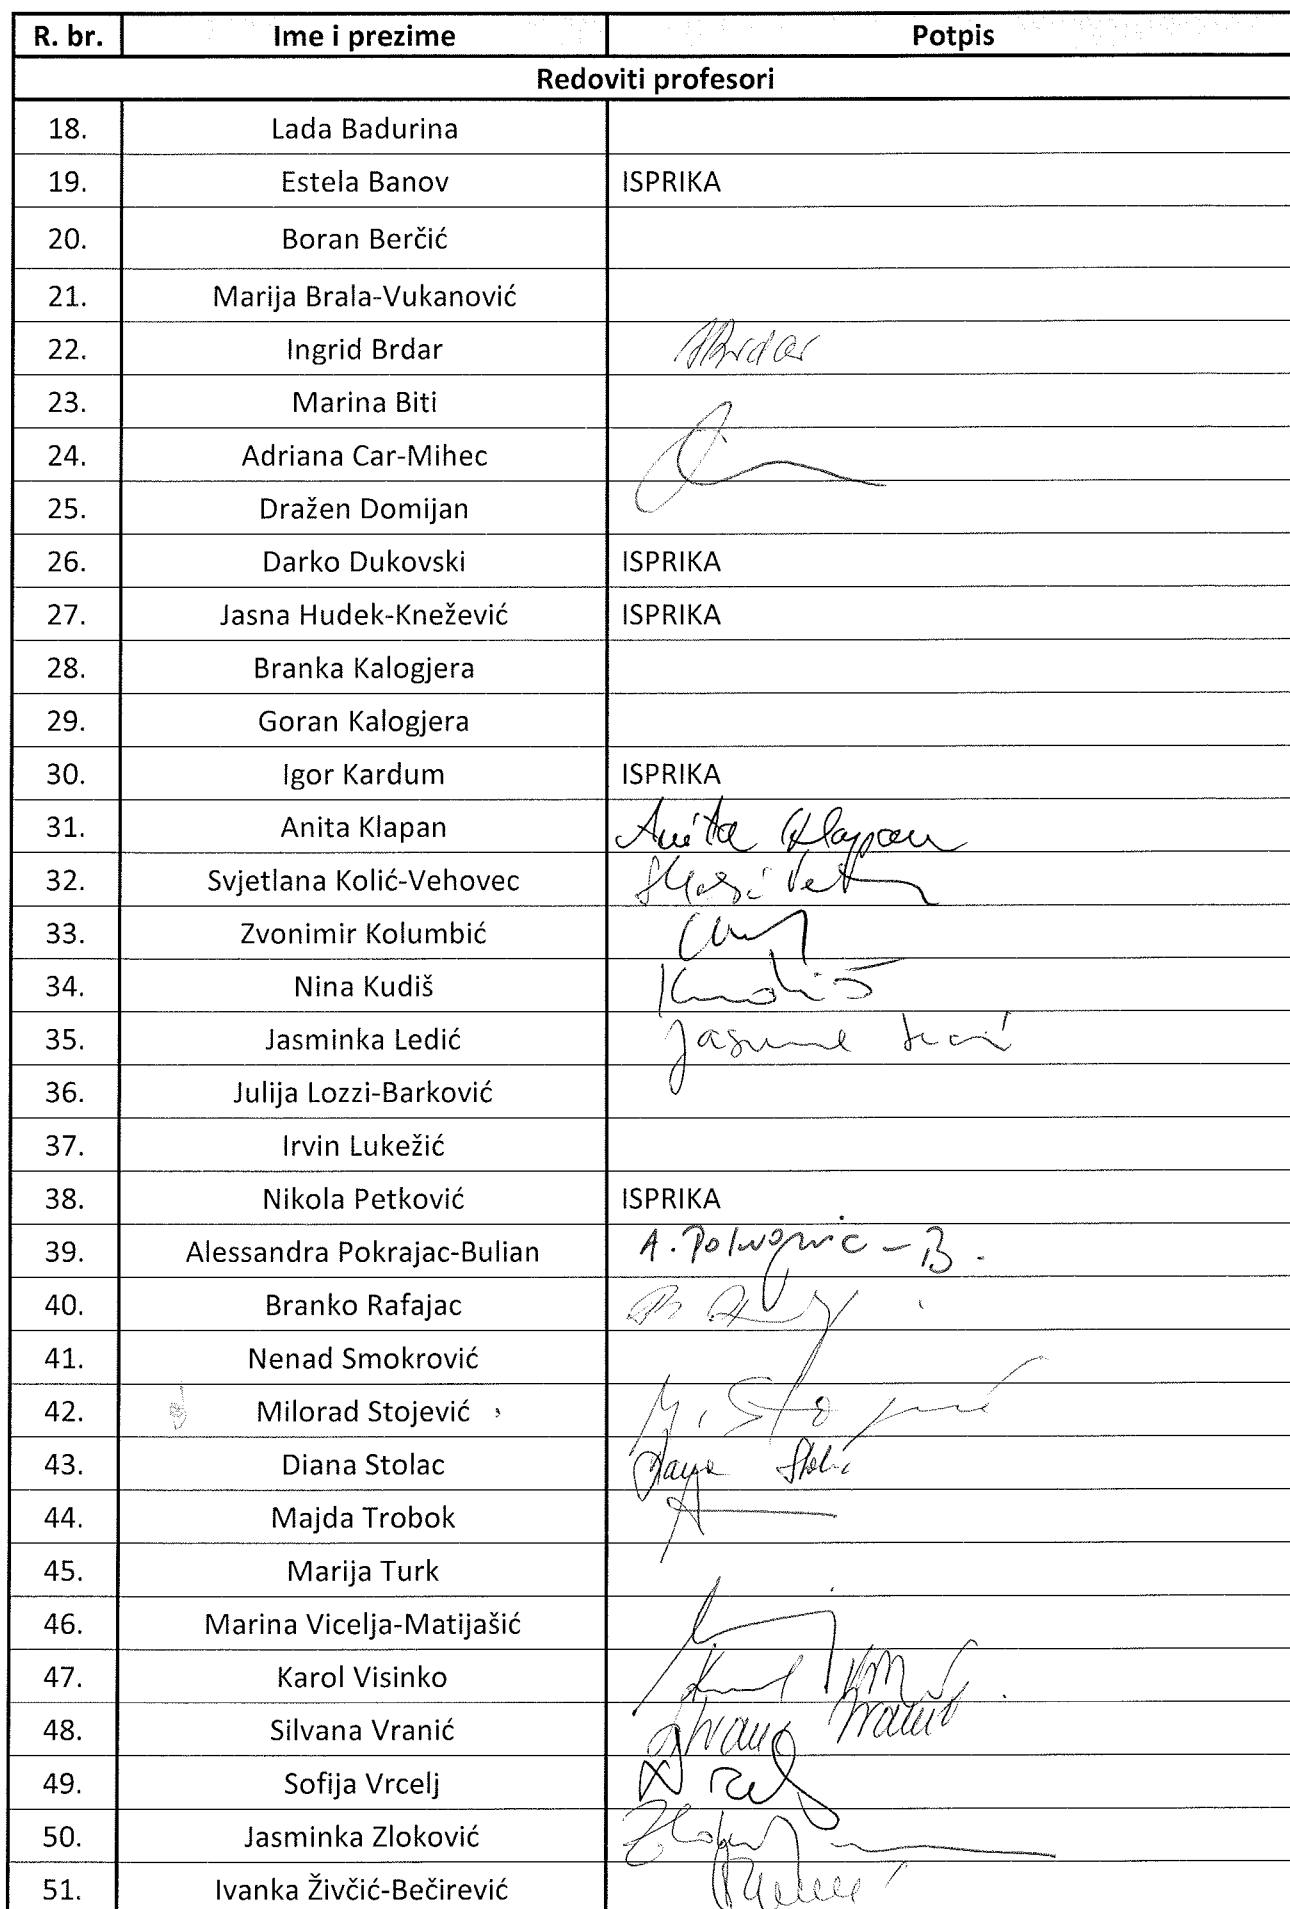 R. br. Ime i prezime Potpis
Redoviti profesori
18. Lada Badurina
19. Estela Banov ISPRIKA
20. Boran Berčić
21. Marija Brala-Vukanović
22. Ingrid Brdar Brdar
23. Marina Biti
24. Adriana Car-Mihec
25. Dražen Domijan
26. Darko Dukovski ISPRIKA
27. Jasna Hudek-Knežević ISPRIKA
28. Branka Kalogjera
29. Goran Kalogjera
30. Igor Kardum ISPRIKA
31. Anita Klapan Anita Klapan
32. Svjetlana Kolić-Vehovec
33. Zvonimir Kolumbić
34. Nina Kudiš Kudiš
35. Jasminka Ledić
36. Julija Lozzi-Barković
37. Irvin Lukežić
38. Nikola Petković ISPRIKA
39. Alessandra Pokrajac-Bulian
40. Branko Rafajac
41. Nenad Smokrović
42. Milorad Stojević
43. Diana Stolac
44. Majda Trobok
45. Marija Turk
46. Marina Vicelja-Matijašić
47. Karol Visinko
48. Silvana Vranić
49. Sofija Vrcelj
50. Jasminka Zloković
51. Ivanka Živčić-Bečirević